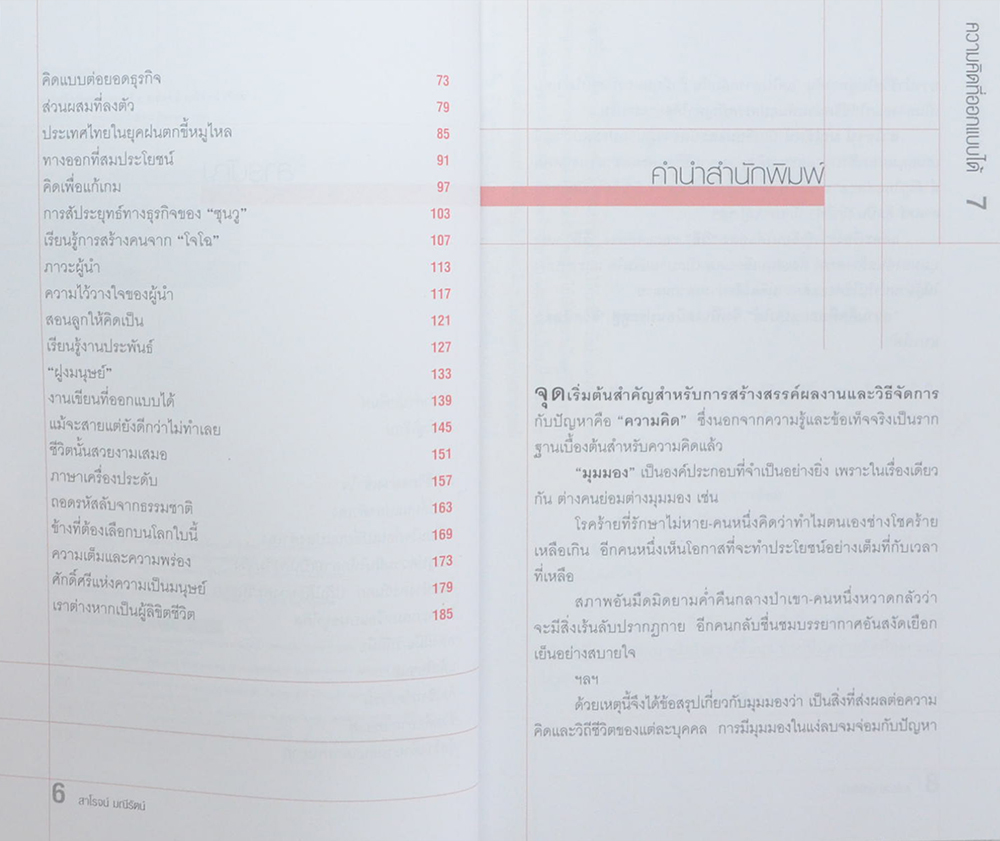 คิดแบบต่อยอดธุรกิจ 73
ส่วนผสมที่ลงตัว 79
ประเทศไทยในยุคฝนตกขี้หมูไหล 85
ทางออกที่สมประโยชน์ 91
คิดเพื่อแก้เกม 97
การสัประยุทธ์ทางธุรกิจของ “ซุนวู” 103
เรียนรู้การสร้างคนจาก “โจโฉ” 107
ภาวะผู้นำ 113
ความไว้วางใจของผู้นำ 117
สอนลูกให้คิดเป็น 121
เรียนรู้งานประพันธ์ 127
“ฝูงมนุษย์” 133
งานเขียนที่ออกแบบได้ 139
แม้จะสายแต่ยังดีกว่าไม่ทำเลย 145
ชีวิตนั้นสวยงามเสมอ 151
ภาษาเครื่องประดับ 157
ถอดรหัสลับจากธรรมชาติ 163
ข้างที่ต้องเลือกบนโลกใบนี้ 169
ความเต็มและความพร่อง 173
ศักดิ์ศรีแห่งความเป็นมนุษย์ 179
เราต่างหากเป็นผู้ลิขิตชีวิต 185
6 สาโรจน์ มณีรัตน์
ความคิดที่ออกแบบได้ 7
คำนำสำนักพิมพ์
จุดเริ่มต้นสำคัญสำหรับการสร้างสรรค์ผลงานและวิธีจัดการ
กับปัญหาคือ “ความคิด” ซึ่งนอกจากความรู้และข้อเท็จจริงเป็นราก
ฐานเบื้องต้นสำหรับความคิดแล้ว
“มุมมอง” เป็นองค์ประกอบที่จำเป็นอย่างยิ่ง เพราะในเรื่องเดียว
กัน ต่างคนย่อมต่างมุมมอง เช่น
โรคร้ายที่รักษาไม่หาย-คนหนึ่งคิดว่าทำไมตนเองช่างโชคร้าย
เหลือเกิน อีกคนหนึ่งเห็นโอกาสที่จะทำประโยชน์อย่างเต็มที่กับเวลา
ที่เหลือ
สภาพอันมืดมิดยามค่ำคืนกลางป่าเขา-คนหนึ่งหวาดกลัวว่า
จะมีสิ่งเร้นลับปรากฏกาย อีกคนกลับชื่นชมบรรยากาศอันสงัดเยือก
เย็นอย่างสบายใจ
ฯลฯ
ด้วยเหตุนี้จึงได้ข้อสรุปเกี่ยวกับมุมมองว่า เป็นสิ่งที่ส่งผลต่อความ
คิดและวิถีชีวิตของแต่ละบุคคล การมีมุมมองในแง่ลบจมจ่อมกับปัญหา